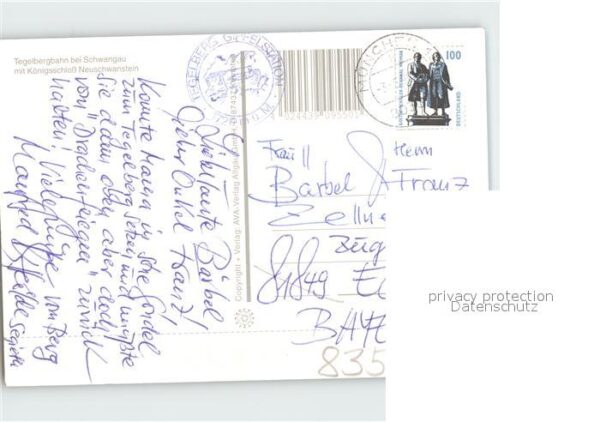 Tegelbergbahn bei Schwangau
mit Königsschloß Neuschwanstein
TEGELBERG GIPFELSTATION
MÜNCHEN
100
DEUTSCHLAND
Copyright + Verlag: AVA-Verlag Allgäu
Liebe Tante Bärbel
lieber Onkel Franz!
Konnte Mama in die Gondel
zum Tegelberg setzen und mußte
sie dann oben aber doch
vom "Drachenfliegen" zurück
halten! Viele Grüße vom Berg
Manfred
Frau Herrn
Bärbel Franz
Zellne
Züg
81849
835
privacy protection
Datenschutz